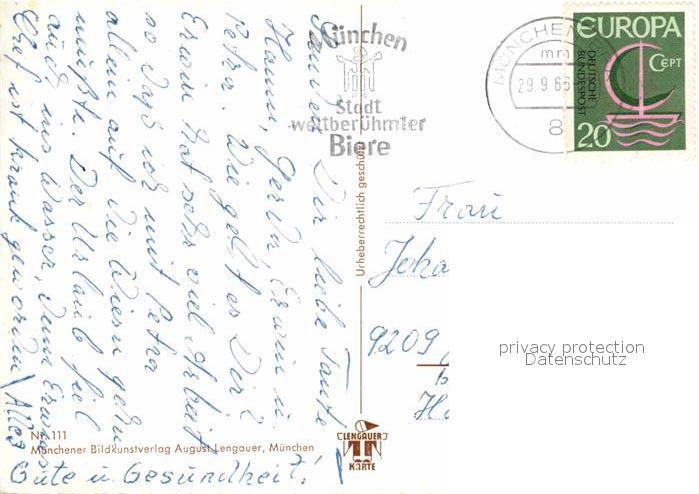 Senden Dir liebe Tante
Hanni, Gerda, Erwin u.
Petra. Wie geht es Dir?
Erwin hat sehr viel Arbeit
so daß ich mit Petra
allein auf die Wiesn gehn
mußte. Der Urlaub fiel
auch ins Wasser, denn Erwins
Chef ist krank geworden. Alles
Gute u. Gesundheit!
Nr. 111
Münchener Bildkunstverlag August Lengauer, München
München
Stadt
weltberühmter
Biere
Urheberrechtlich geschützt
LENGAUER
KARTE
MÜNCHEN
29.9.66
8
EUROPA
CEPT
DEUTSCHE
BUNDESPOST
20
Frau
Joha
9209
privacy protection
Datenschutz